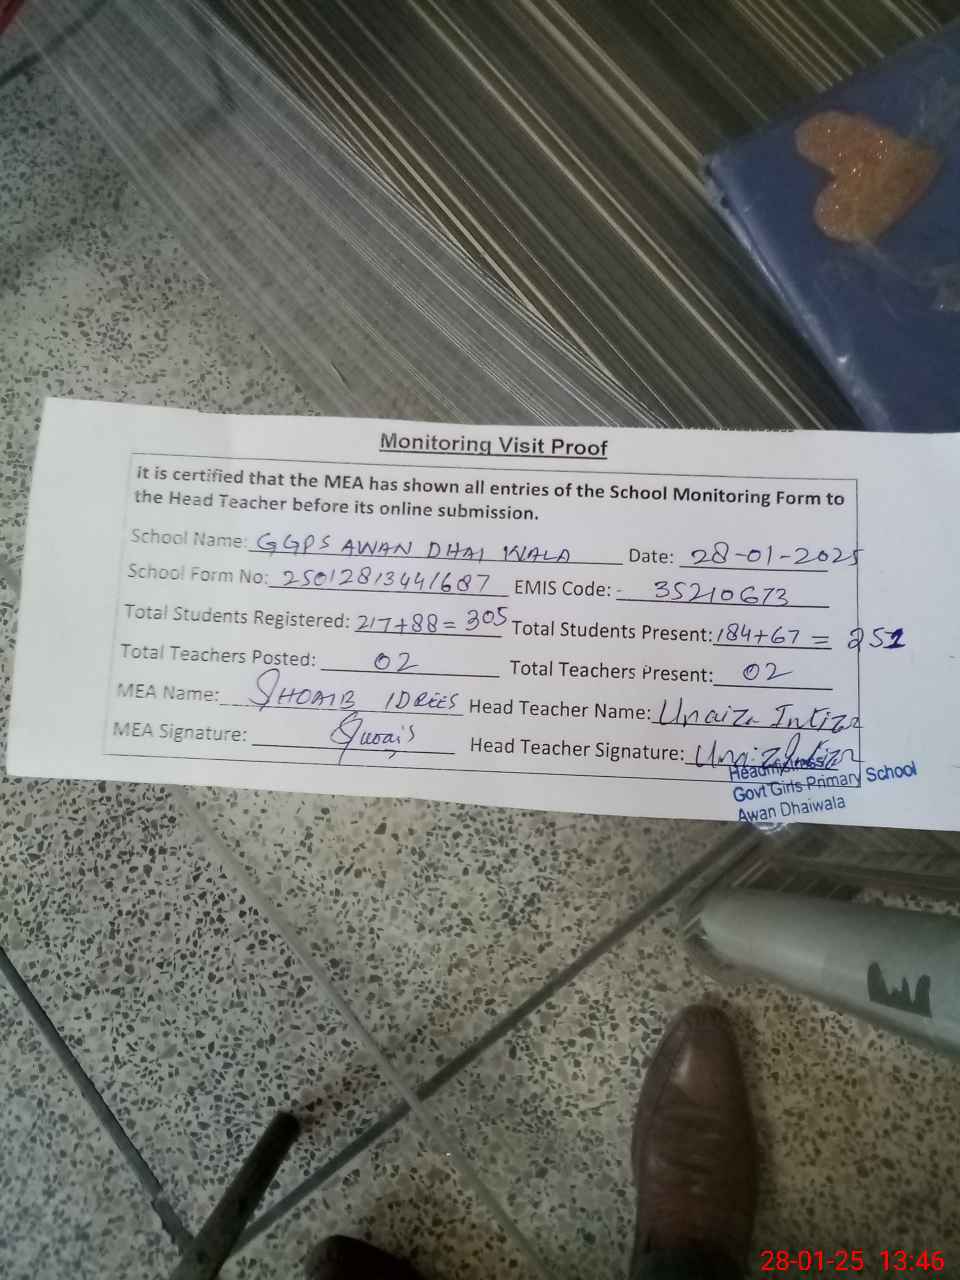 Monitoring Visit Proof
it is certified that the MEA has shown all entries of the School Monitoring Form to
the Head Teacher before its online submission.
School Name: GGPS AWAN DHAI WALA Date: 28-01-2025
School Form No: 25012813441687 EMIS Code: - 35210673
Total Students Registered: 217+88=305 Total Students Present: 184+67 = 251
Total Teachers Posted: 02 Total Teachers Present: 02
MEA Name: SHOAIB IDREES Head Teacher Name: Unaiza Intizar
MEA Signature: Head Teacher Signature:
Headmistress
Govt Girls Primary School
Awan Dhaiwala
28-01-25 13:46